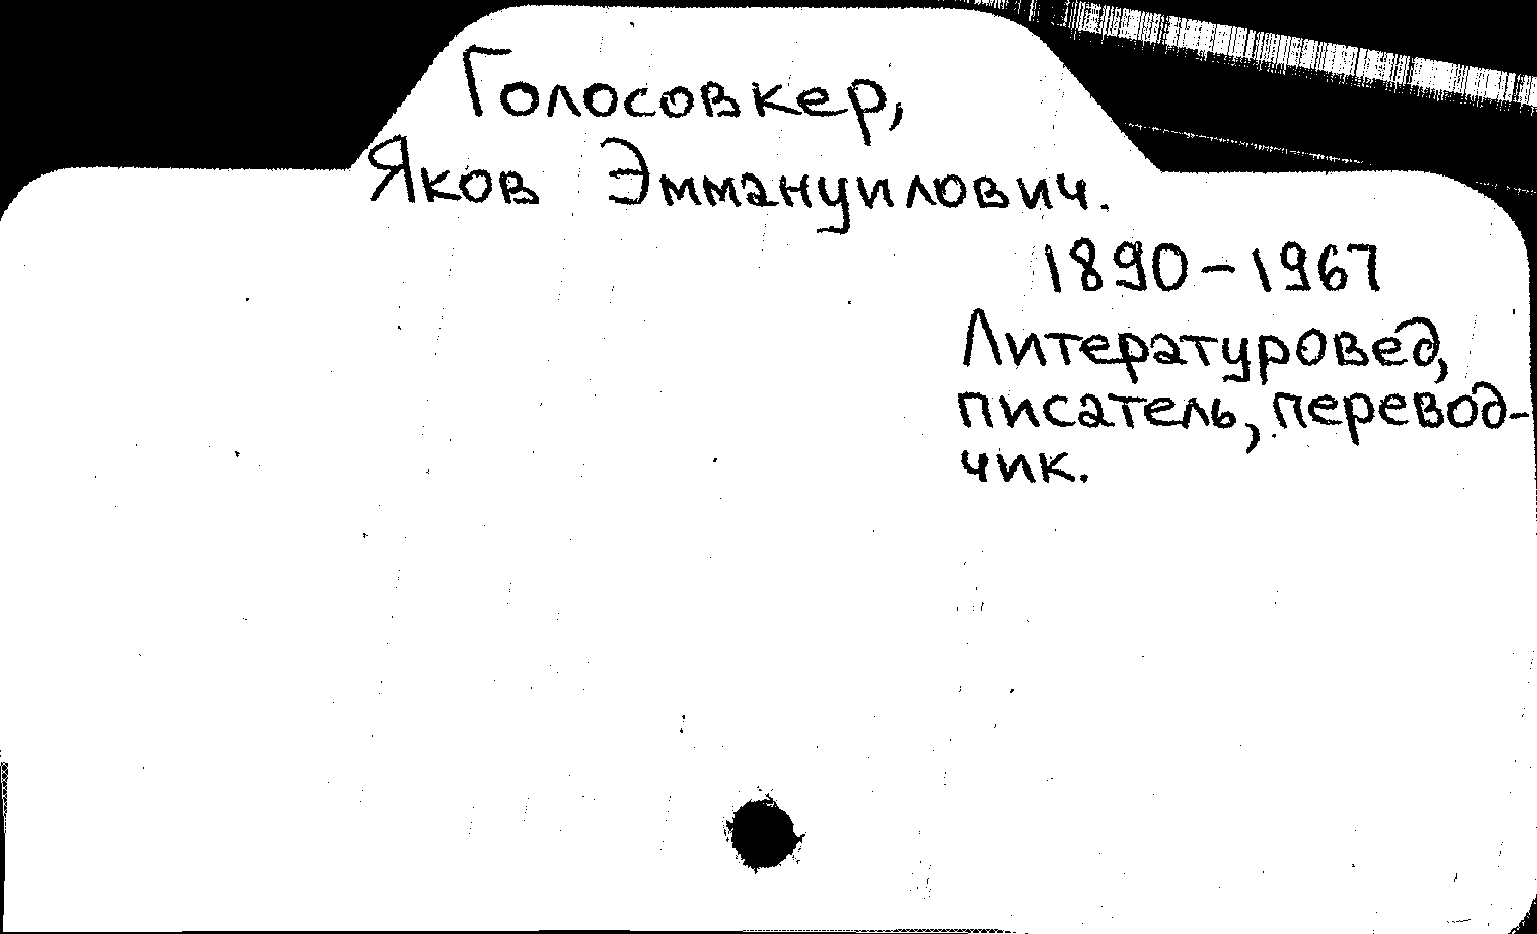 Голосовкер,
Яков Эммануилович.
1890-1967
Литературовед,
писатель, перевод-
чик.